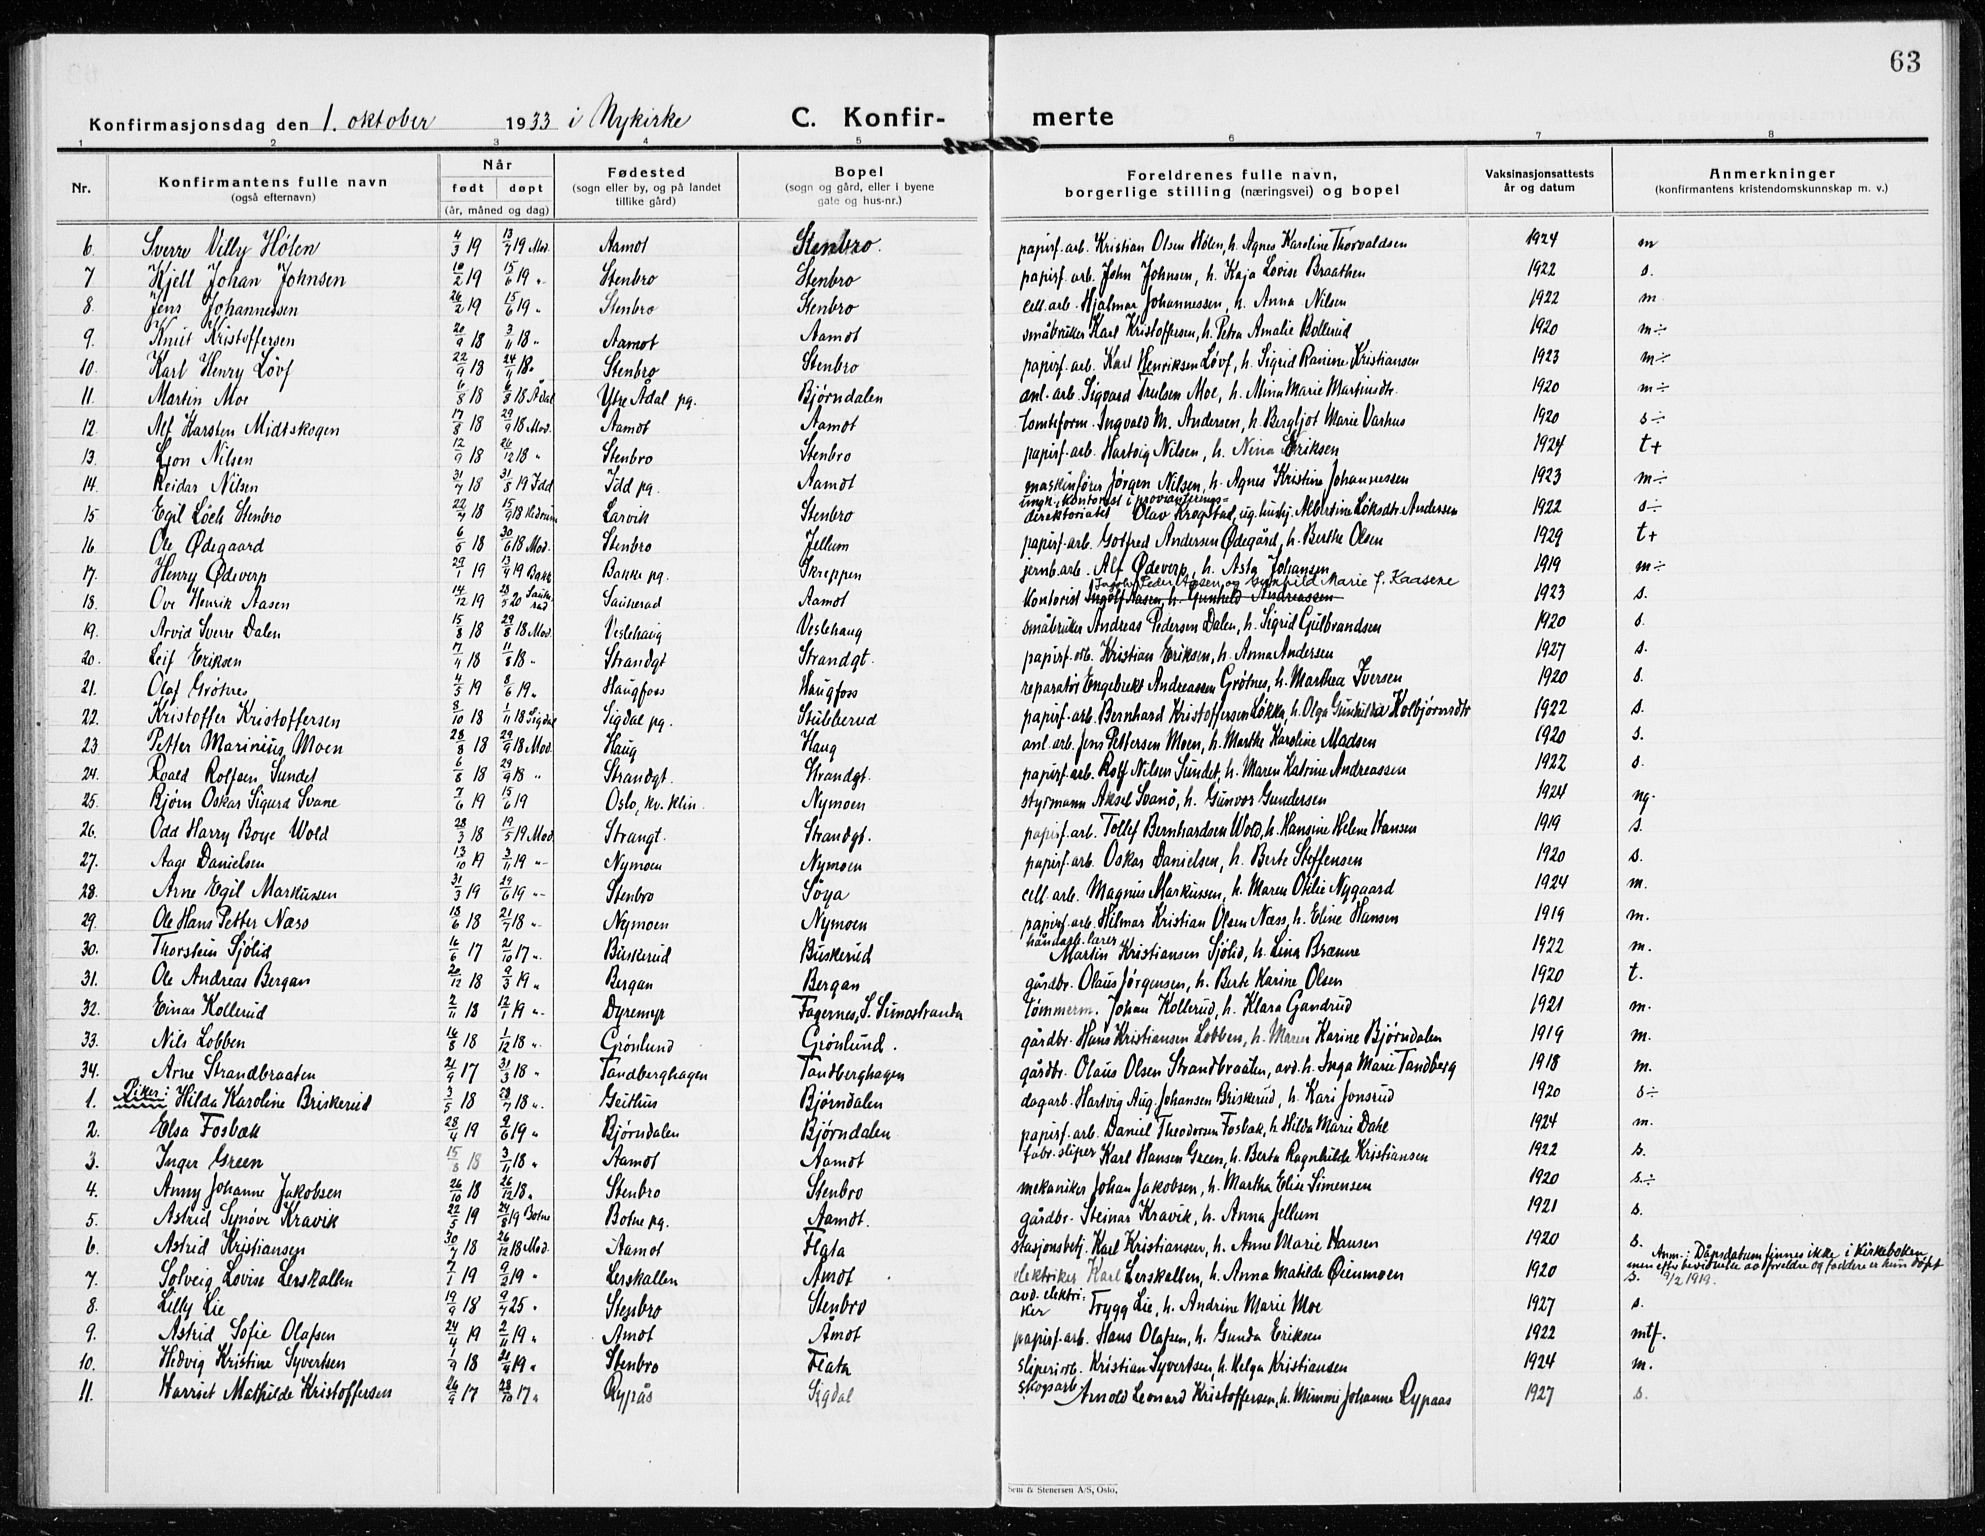 63
Konfirmasjonsdag den 1. oktober 1933 i Nykirke C. Konfir- merte
1 2 3 4 5 6 7 8
Nr. Konfirmantens fulle navn (også efternavn) Når født døpt (år, måned og dag) Fødested (sogn eller by, og på landet tillike gård) Bopel (sogn og gård, eller i byene gate og hus-nr.) Foreldrenes fulle navn, borgerlige stilling (næringsvei) og bopel Vaksinasjonsattests år og datum Anmerkninger (konfirmantens kristendomskunnskap m. v.)
6. Sverre Villy Hølen 4/3 19 13/7 19 Mod. Aamot Stenbro. papirf. arb. Kristian Olsen Hølen, h. Agnes Karoline Thorvaldsen 1924 m
7 Kjell Johan Johnsen 10/2 19 15/6 19 " Stenbro Stenbro papirf. arb. John Johnsen, h. Kaja Lovise Braathen 1922 s.
8. Jens Johannessen 26/2 19 15/6 19 " Stenbro Stenbro cell. arb. Hjalmar Johannessen, h. Anna Nilsen 1922 m
9. Knut Kristoffersen 20/9 18 3/11 18 " Aamot Aamot småbruker Karl Kristoffersen, h. Petra Amalie Bollerud 1920 m÷
10. Karl Henry Løvf 22/9 18 24/11 18 " Stenbro Stenbro papirf. arb. Karl Henriksen Løvf, h. Sigrid Ranine Kristiansen 1923 m÷
11. Martin Moe 6/8 18 6/8 18 Ådal Ytre Ådal pg. Bjørndalen anl. arb. Sigvard Trulsen Moe, h. Mina Marie Martinsdtr. 1920 m÷
12 Alf Karsten Midtskogen 17/8 18 29/9 18 Mod. Aamot Aamot tomteform. Ingvald M. Andersen, h. Bergljot Marie Varhus 1920 s÷
13. Leon Nilsen 12/9 18 26/12 18 " Stenbro Stenbro papirf. arb. Hartvig Nilsen, h. Nina Eriksen 1924 t+
14. Reidar Nilsen 31/7 18 31/8 19 Idd Idd pg. Aamot maskinfører Jørgen Nilsen, h. Agnes Kristine Johannessen 1923 m÷
15 Egil Løch Stenbro 22/7 18 15/9 18 Hedrum Larvik Stenbro ungk., kontorist i provianterings= direktoriatet Olav Krogstad, ug. hushj. Albertine Løksdtr. Andersen 1922 s÷
16 Ole Ødegaard 6/5 18 30/6 18 Mod. Stenbro Jellum papirf. arb. Gotfred Andersen Ødegård, h. Berthe Olsen 1929 t+
17. Henry Ødeverp 29/1 19 13/4 19 Bakke Bakke pg. Skreppen jernb. arb. Alf Ødeverp, h. Asta Johansen 1919 m÷
18. Ove Henrik Aasen 14/12 19 23/5 20 Sauherad Sauherad Aamot kontorist Ingolf Aasen, h. Gunhild Andreassen Jacob Peder Aasen og Gunhild Marie f. Kaasene 1923 s.
19. Arvid Sverre Dalen 15/8 18 29/8 18 Mod. Veslehaug Veslehaug småbruker Andreas Pedersen Dalen, h. Sigrid Gulbrandsen 1920 s.
20. Leif Eriksen 7/4 18 11/8 18 " Strandgt. Strandgt. papirf. arb. Kristian Eriksen, h. Anna Andersen 1927 s.
21. Olaf Grøtnes 4/5 19 8/6 19 " Haugfoss Haugfoss reparatør Engebrekt Andreassen Grøtnes, h. Marthea Iversen 1920 s.
22. Kristoffer Kristoffersen 8/10 18 1/11 18 Sigdal Sigdal pg. Stubberud papirf. arb. Bernhard Kristoffersen Løkka, h. Olga Gunhilda Kolbjørnsdtr 1922 s.
23 Petter Marinius Moen 28/8 18 29/9 18 Mod. Haug Haug anl. arb. Jens Pettersen Moen, h. Marthe Karoline Madsen 1920 s.
24. Roald Rolfsen Sundet 6/8 18 29/9 18 " Strandgt. Strandgt. papirf. arb. Rolf Nilsen Sundet, h. Maren Katrine Andreassen 1922 s.
25. Bjørn Oskar Sigurd Svane 7/6 19 15/6 19 Oslo, kv. klin. Nymoen styrmann Aksel Svanø, h. Gunvor Gundersen 1924 ng.
26. Odd Harry Boye Wold 28/3 18 19/5 19 Mod. Strangt. Strandgt. papirf. arb. Tollef Bernhardsen Wold, h. Hansine Helene Hansen 1919 s.
27. Aage Danielsen 13/10 19 3/11 19 " Nymoen Nymoen papirf. arb. Oskar Danielsen, h. Berte Steffensen 1920 s.
28. Arne Egil Markussen 31/3 19 29/6 19 " Stenbro Søya cell. arb. Magnus Markussen, h. Maren Otilie Nygaard 1924 m.
29. Ole Hans Petter Næss 18/6 18 21/7 18 " Nymoen Nymoen papirf. arb. Hilmar Kristian Olsen Næss, h. Eline Hansen 1919 m.
30. Thorstein Sjølid 16/6 17 21/10 17 " Buskerud Buskerud håndarb. lærer Martin Kristiansen Sjølid, h. Lina Brænne 1922 m.
31. Ole Andreas Bergan 20/12 18 9/3 19 " Bergan Bergan gårdbr. Olaus Jørgensen, h. Berte Karine Olsen 1920 t.
32. Einar Kollerud 2/11 18 12/1 19 " Dyremyr Fagernes, S. Simostranda tømmerm. Johan Kollerud, h. Klara Gandrud 1921 m.
33. Nils Lobben 16/8 18 1/12 18 " Grønlund Grønlund. gårdbr. Hans Kristiansen Lobben, h. Maren Karine Bjørndalen 1919 m.
34. Arne Strandbraaten 21/9 17 31/3 18 " Tandberghagen Tandberghagen gårdbr. Olaus Olsen Strandbraaten, avd. h. Inga Marie Tandberg 1918 m.
1. Piker: Hilda Karoline Briskerud 3/5 18 28/7 18 " Geithus Bjørndalen dagarb. Hartvig Aug. Johansen Briskerud, h. Kari Jonsrud 1920 s÷
2. Elsa Fosbæk 28/4 19 9/6 19 " Bjørndalen Bjørndalen papirf. arb. Daniel Theodorsen Fosbæk, h. Hilda Marie Dahl 1924 m.
3. Inger Green 15/8 18 3/11 18 " Aamot Aamot fabr. sliper Karl Hansen Green, h. Berta Ragnhilde Kristiansen 1922 s.
4. Anny Johanne Jakobsen 26/10 18 26/12 18 " Stenbro Stenbro mekaniker Johan Jakobsen, h. Martha Elise Simensen 1920 s÷
5. Astrid Synøve Kravik 22/5 19 24/8 19 Botne Botne pg. Aamot. gårdbr. Steinar Kravik, h. Anna Jellum 1921 s.
6. Astrid Kristiansen 30/7 18 26/12 18 Mod. Aamot Flata stasjonsbetj. Karl Kristiansen, h. Anne Marie Hansen 1920 s.
7. Solveig Lovise Lerskallen 7/1 19 9/2 19 " Lerskallen Åmot elektriker Karl Lerskallen, h. Anna Matilde Øienmoen 1920 s. Anm.: Dåpsdatum finnes ikke i kirkeboken men efter bevidnelse av foreldre og faddere er hun døpt 9/2 1919.
8. Lilly Lie 19/9 18 9/7 25 " Stenbro Stenbro avd. elektriker Trygg Lie, h. Andrine Marie Moe 1927 s.
9. Astrid Sofie Olafsen 24/4 19 2/11 19 " Åmot Åmot papirf. arb. Hans Olafsen, h. Gunda Eriksen 1922 mtf.
10. Hedvig Kristine Syvertsen 1/9 18 21/4 19 " Stenbro Flata sliperiarb. Kristian Syvertsen, h. Helga Kristiansen 1924 m.
11. Harriet Mathilde Kristoffersen 26/9 17 28/10 17 " Rypås Sigdal skogsarb. Arnold Leonard Kristoffersen, h. Mimmi Johanne Rypaas 1927 s.
Sem & Stenersen A/S, Oslo.